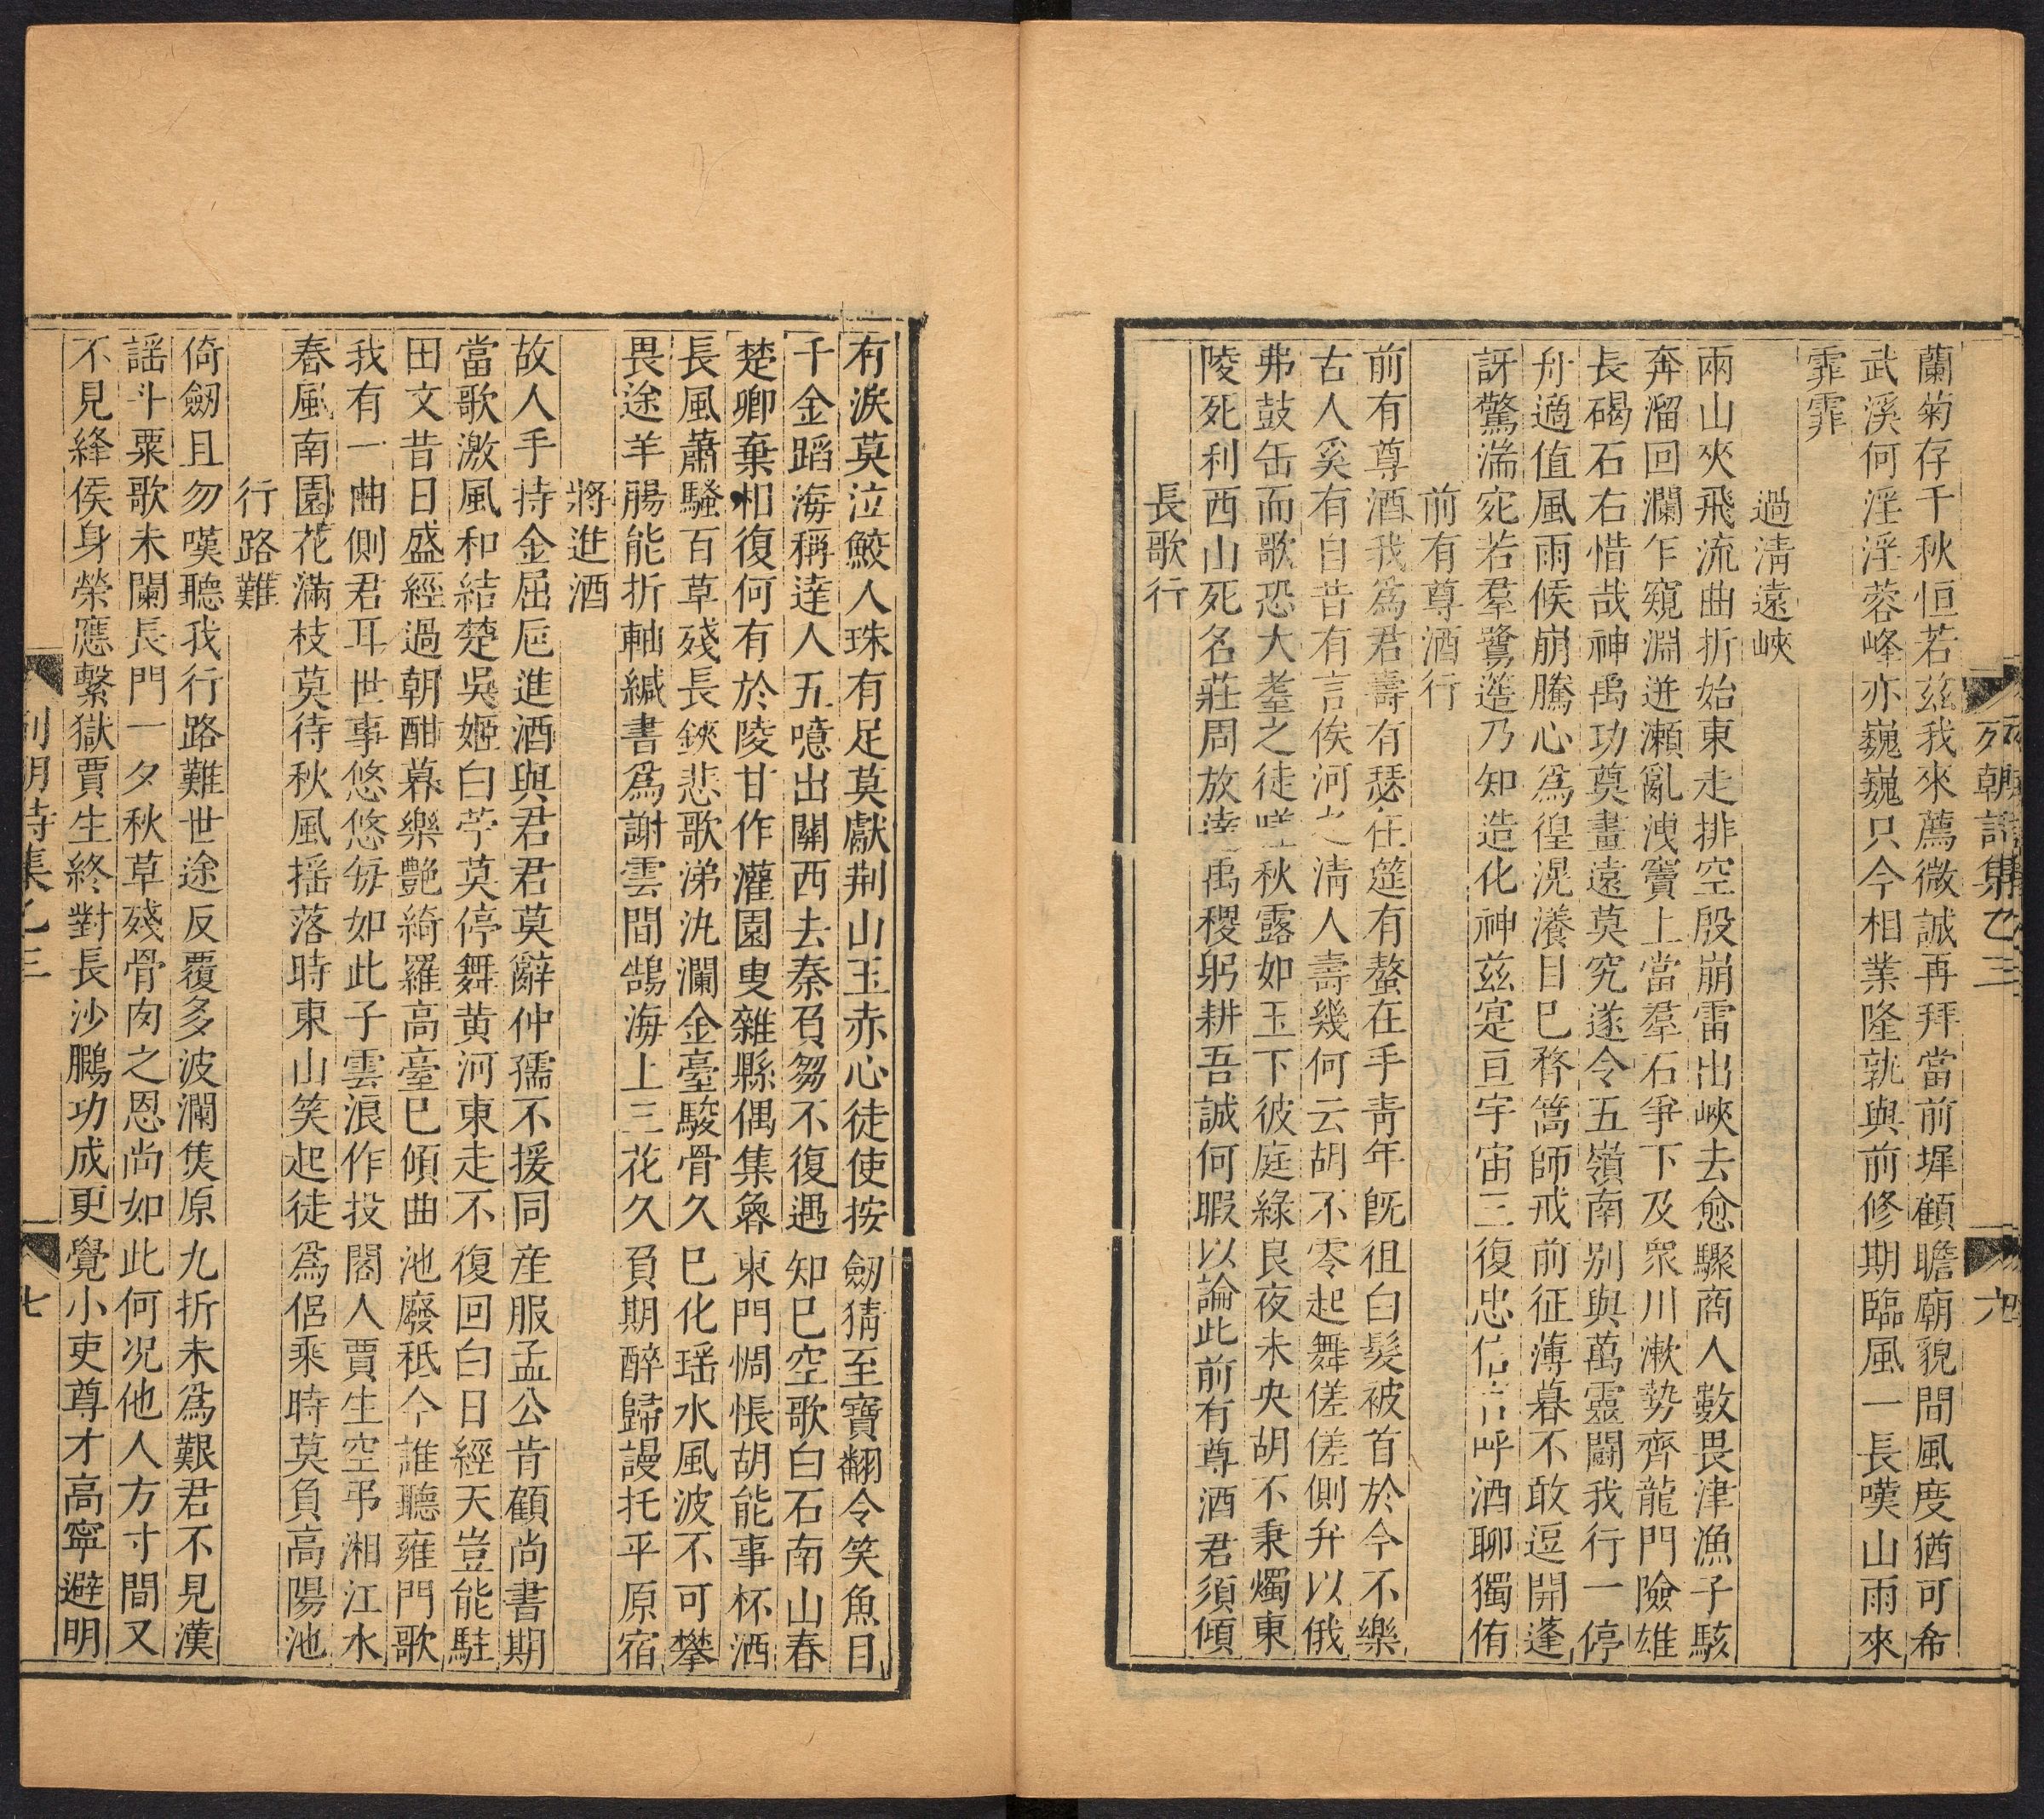 蘭菊存千秋恒若茲我來薦微誠再拜當前墀顧瞻廟貌間風度猶可希
武溪何淫淫蓉峰亦巍巍只今相業隆孰與前修期臨風一長嘆山雨來
霏霏
過清遠峽
兩山夾飛流曲折始東走排空殷崩雷出峽去愈驟商人數畏津漁子駭
奔溜回瀾乍窺淵迸瀨亂洩竇上當羣石爭下及衆川漱勢齊龍門險雄
長碣石右惜哉神禹功奠畫遠莫究遂令五嶺南别與萬靈闘我行一停
舟適值風雨候崩騰心爲徨滉瀁目已瞀篙師戒前征薄暮不敢逗開蓬
訝驚湍宛若羣鷺簉乃知造化神茲寔亘宇宙三復忠信言呼酒聊獨侑
前有尊酒行
前有尊酒我爲君壽有瑟在筵有螯在手青年旣徂白髮被首於今不樂
古人奚有自昔有言俟河之清人壽幾何云胡不零起舞傞傞側弁以俄
弗鼓缶而歌恐大耋之徒嗟秋露如玉下彼庭綠良夜未央胡不秉燭東
陵死利西山死名莊周放達禹稷躬耕吾誠何暇以論此前有尊酒君須傾
長歌行
死朝詩集乙三
六
有淚莫泣鮫人珠有足莫獻荆山玉赤心徒使按劒猜至寶翻令笑魚目
千金蹈海稱達人五噫出關西去秦百芻不復遇知巳空歌白石南山春
楚卿棄相復何有於陵甘作灌園叟雜縣偶集魯東門惆悵胡能事杯酒
長風蕭騷百草殘長鋏悲歌涕汍瀾金臺駿骨久巳化瑶水風波不可攀
畏途羊腸能折軸緘書爲謝雲間鵠海上三花久負期醉歸謾托平原宿
將進酒
故人手持金屈卮進酒與君君莫辭仲孺不援同産服孟公肯顧尚書期
當歌激風和結楚吳姬白苧莫停舞黄河東走不復回白日經天豈能駐
田文昔日盛經過朝酣暮樂艷綺羅高臺巳傾曲池廢秖今誰聽雍門歌
我有一曲側君耳世事悠悠每如此子雲浪作投閣人賈生空弔湘江水
春風南園花滿枝莫待秋風揺落時東山笑起徒爲侶乘時莫負高陽池
行路難
倚劒且勿嘆聽我行路難世途反覆多波瀾隻原九折未爲艱君不見漢
謡斗粟歌未闌長門一夕秋草殘骨肉之恩尚如此何况他人方寸間又
不見絳侯身榮應繫獄賈生終對長沙鵩功成更覺小吏尊才高寧避明
列朝詩集乙三
七